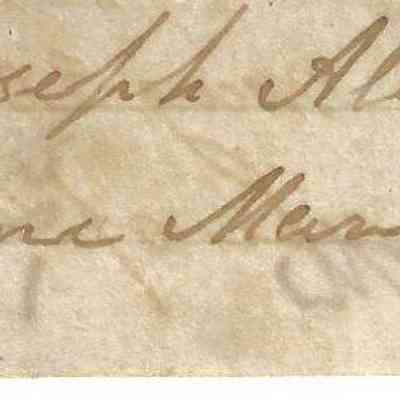 seph Al
ne Mar